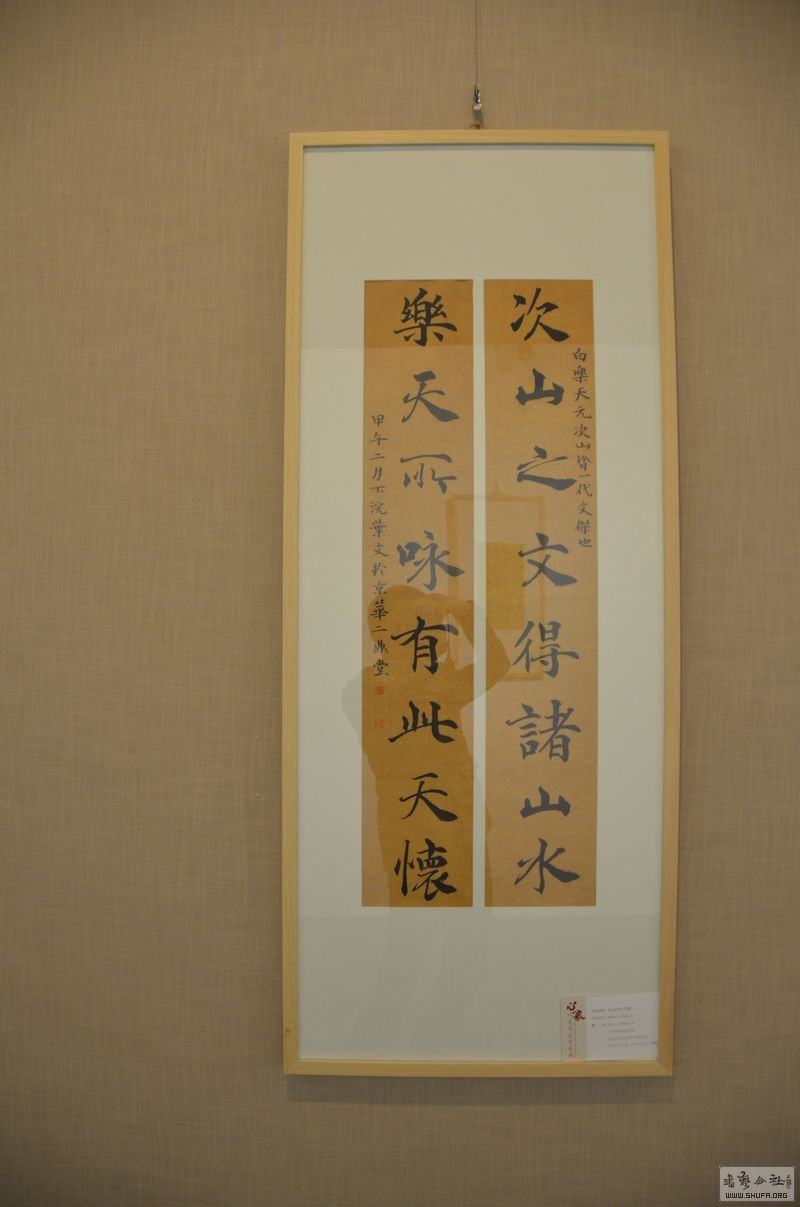 次山之文得諸山水
白樂天元次山皆一代文傑也
樂天所咏有此天懷
甲午二月下浣葉文於京華二鼎堂
心象
書法公社
WWW.SHUFA.ORG